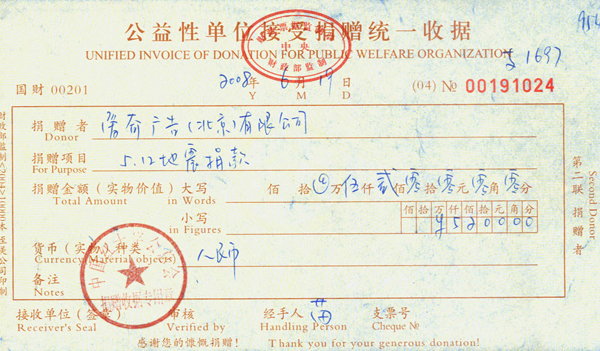 公益性单位接受捐赠统一收据
UNIFIED INVOICE OF DONATION FOR PUBLIC WELFARE ORGANIZATION
1697
国财 00201
2008年 6月 19日
Y M D
(04) № 00191024
中央
财政部监制
捐赠者 广告(北京)有限公司
Donor
捐赠项目 5.12地震捐款
For Purpose
捐赠金额(实物价值)大写 佰 拾 万 伍仟 贰佰 零拾 零元 零角 零分
Total Amount in Words
小写 佰拾万仟佰拾元角分
in Figures ¥520000
货币(实物)种类 人民币
Currency(Material objects)
备注
Notes
捐赠收据专用章
接收单位(签章) 审核 经手人 苗 支票号
Receiver's Seal Verified by Handling Person Cheque №
感谢您的慷慨捐赠! Thank you for your generous donation!
第二联捐赠者
Second Donor